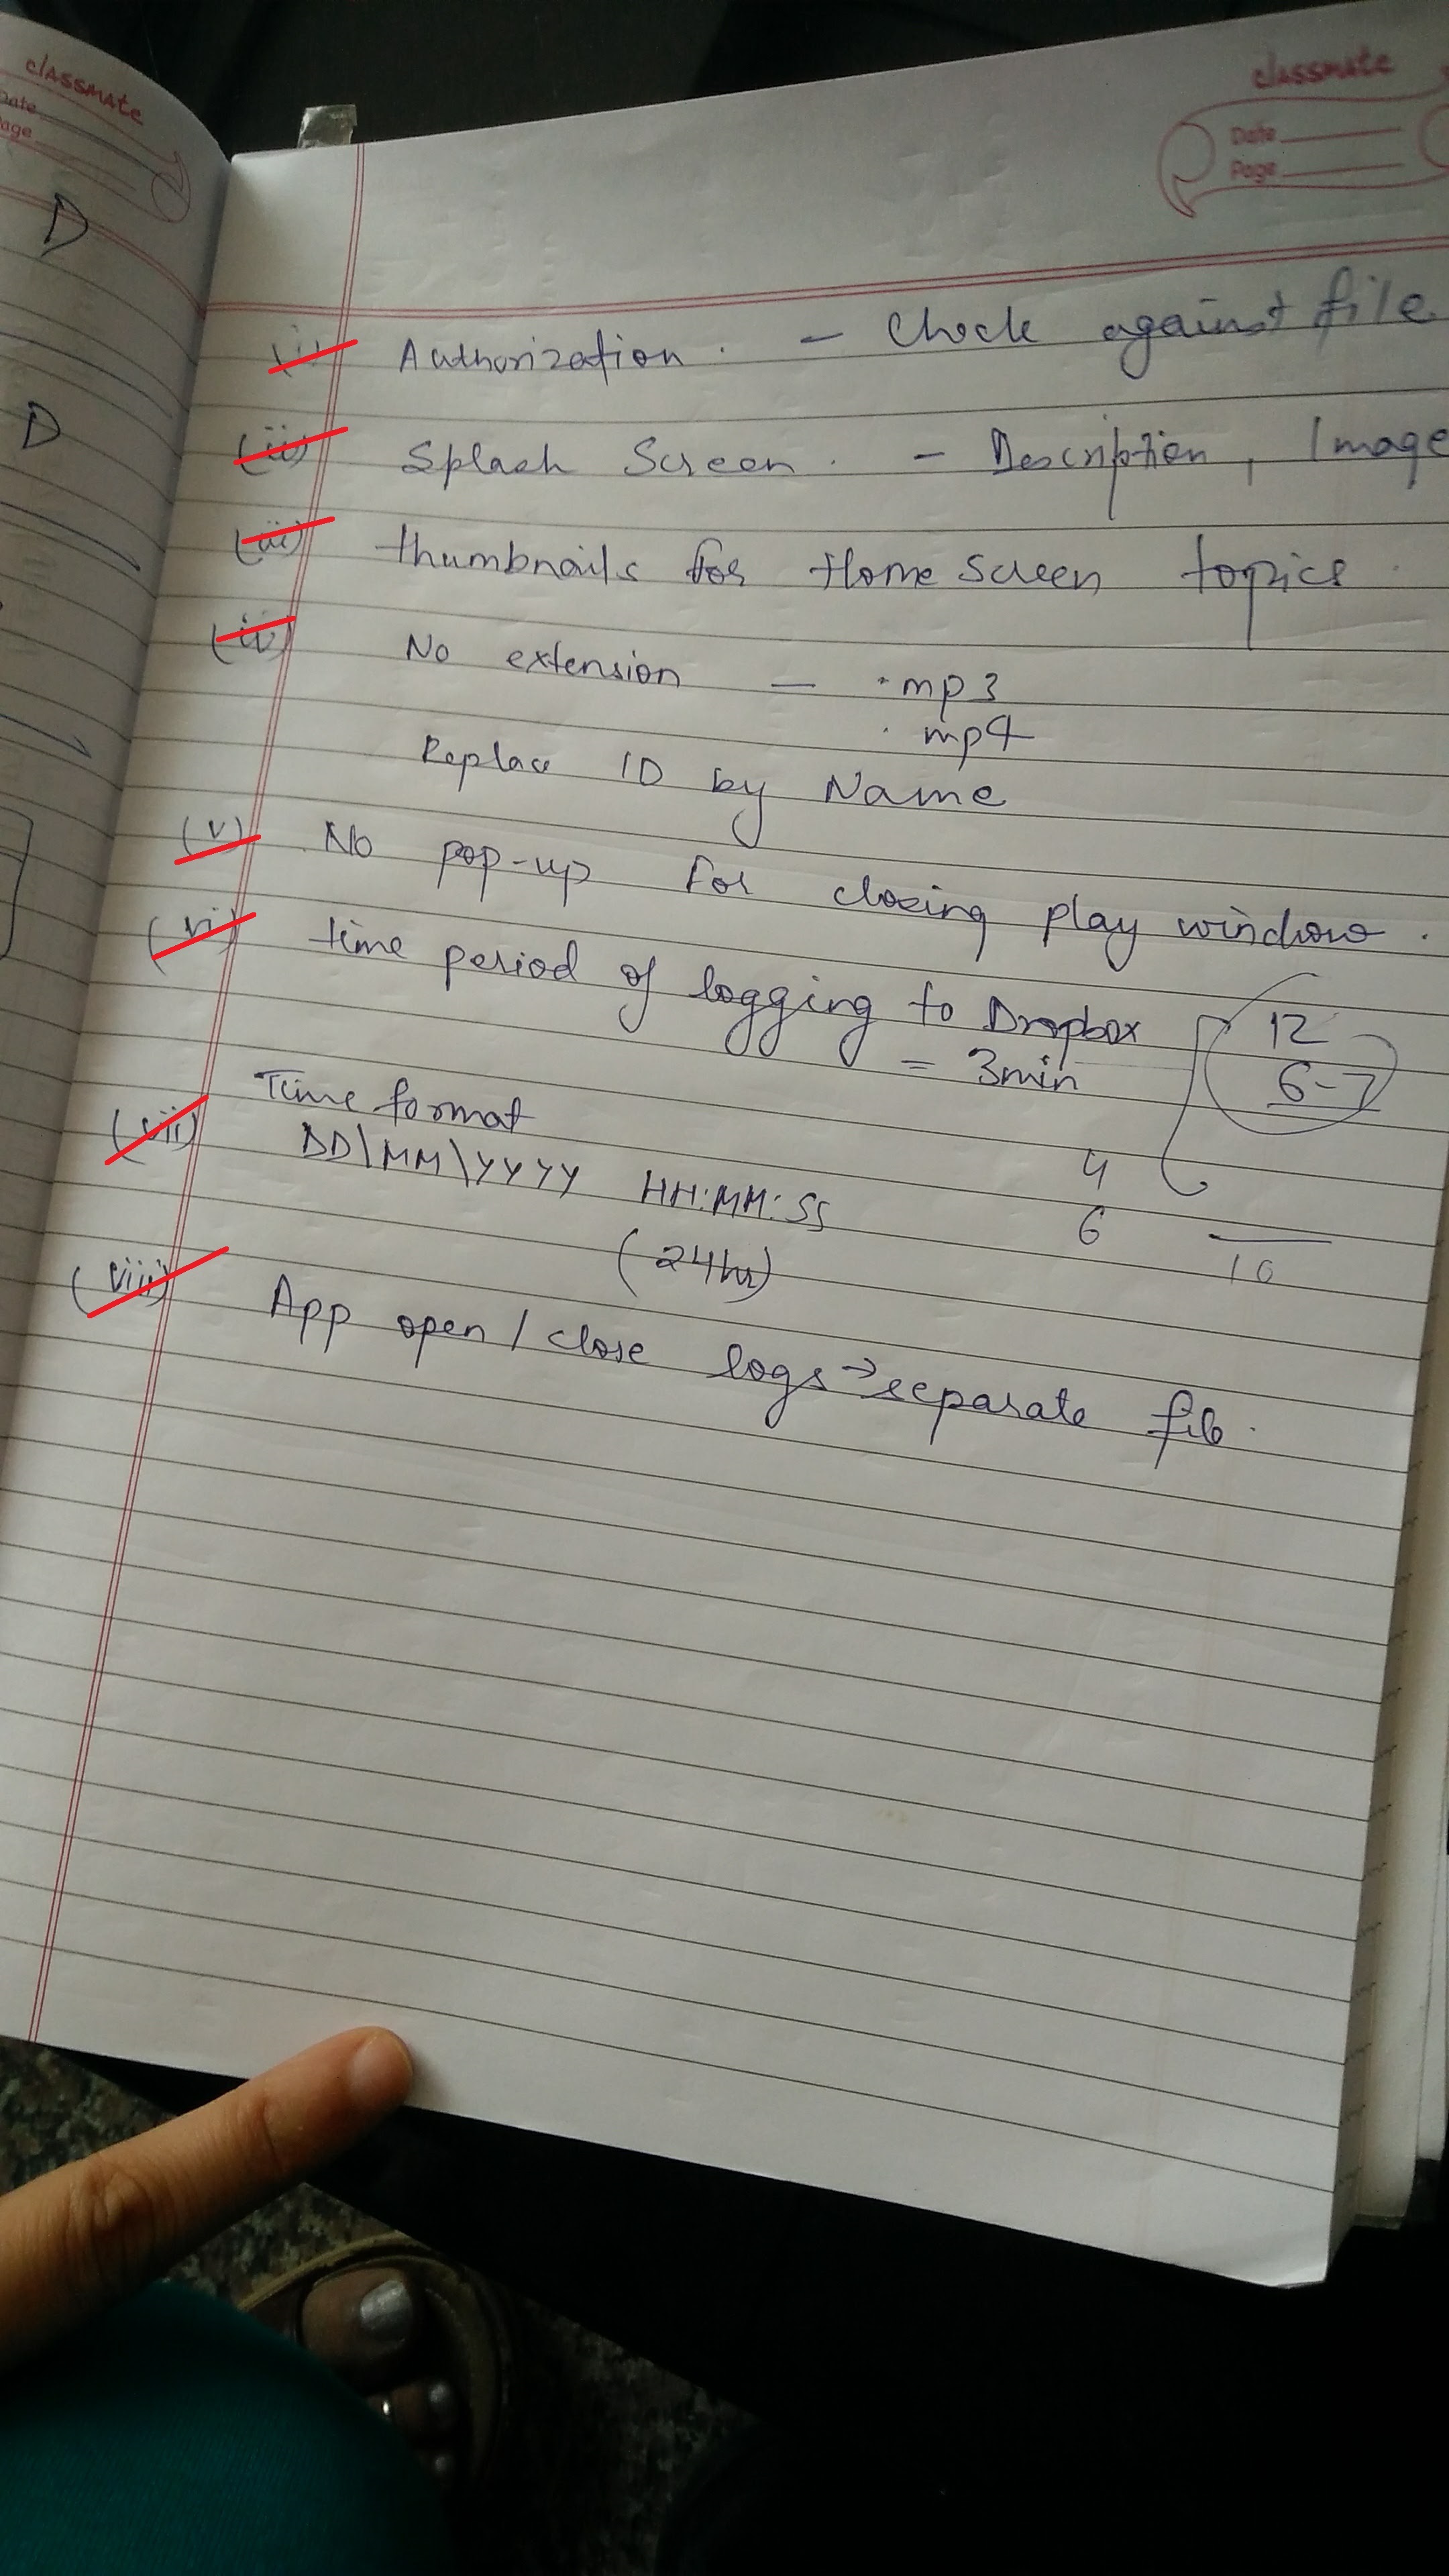 classmate
Date
Page
D
D
classmate
Date
Page
(i) Authorization. - Check against file
(ii) Splash Screen. - Description, Image
(iii) Thumbnails for Home Screen topics.
(iv) No extension - .mp3
.mp4
Replace ID by Name
(v) No pop-up for closing play window.
(vi) Time period of logging to Dropbox
= 3min
12
6-7
(vii) Time format
DD\MM\YYYY HH:MM:SS
(24hr)
4
6
10
(viii) App open / close logs → separate file.